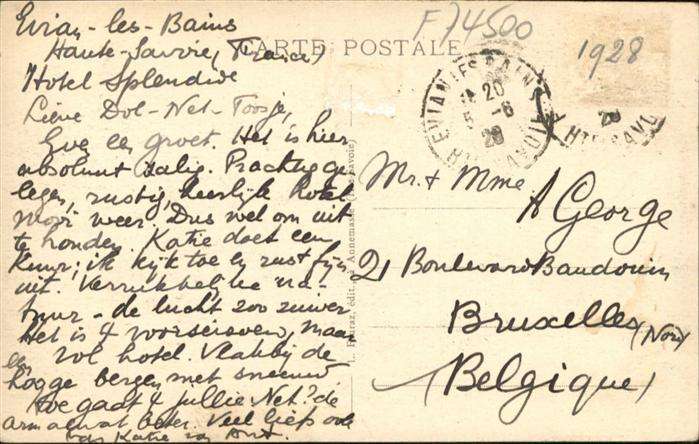 Evian-les-Bains
Haute-Savoie, (France)
Hotel Splendide
Lieve Dol-Net-Toosje,
Even een groet. Het is hier
absoluut zalig. Prachtig ge-
legen, rustig, heerlijk hotel
mooi weer. Dus wel om uit
te houden. Katie doet een
kuur; ik kijk toe en rust fijn
uit. Verrukkelijke na-
tuur - de lucht zoo zuiver
Het is 4 voorseizoen, maar
een vol hotel. Vlakbij de
hooge bergen met sneeuw.
Hoe gaat 4 jullie Net? de
arm alwat beter. Veel liefs ook
van Katie
CARTE POSTALE
F74500
1928
EVIAN LES BAINS
20
5 -6
28
Mr. & Mme
A George
21 Boulevard Baudouin
Bruxelles (Nord)
(Belgique)